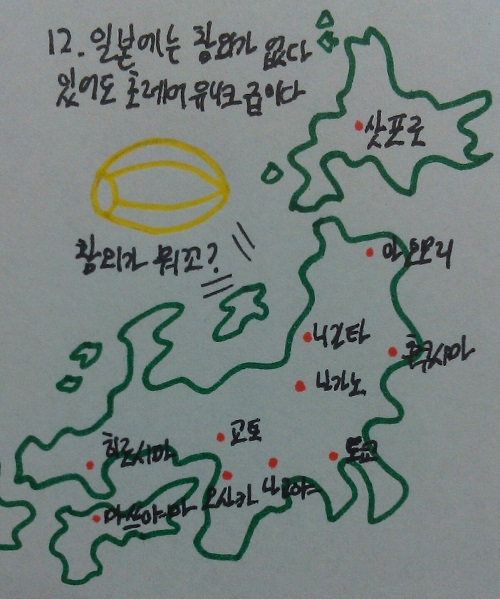 12. 일본에는 참외가 없다
있어도 초레어 유니크급이다
참외가 뭐꼬?
삿포로
아오모리
니가타
후쿠시마
나가노
교토
히로시마
도쿄
오사카
나고야
마쓰야마